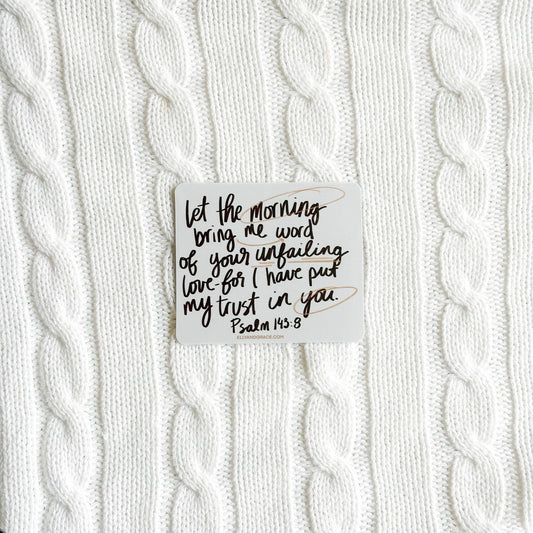 let the morning
bring me word
of your unfailing
love-for I have put
my trust in you.
Psalm 143:8
ELLYANDGRACE.COM